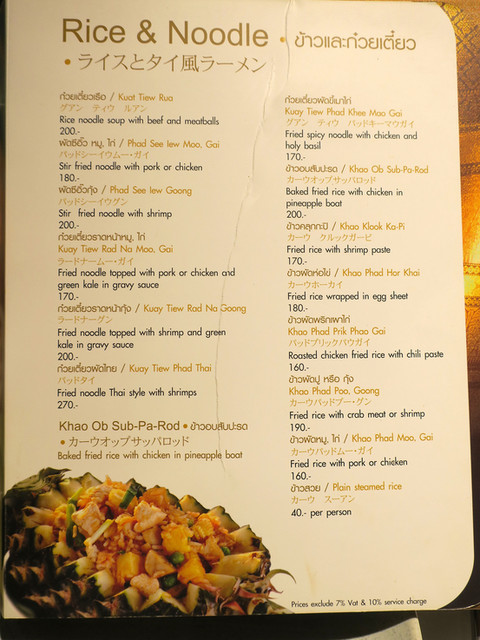 Rice & Noodle • ข้าวและก๋วยเตี๋ยว
• ライスとタイ風ラーメン
ก๋วยเตี๋ยวเรือ / Kuat Tiew Rua
グアン ティウ ルアン
Rice noodle soup with beef and meatballs
200.-
ผัดซีอิ๊ว หมู, ไก่ / Phad See Iew Moo, Gai
パッドシーイウムー・ガイ
Stir fried noodle with pork or chicken
180.-
ผัดซีอิ๊วกุ้ง / Phad See Iew Goong
パッドシーイウグン
Stir fried noodle with shrimp
200.-
ก๋วยเตี๋ยวราดหน้าหมู, ไก่
Kuay Tiew Rad Na Moo, Gai
ラードナームー・ガイ
Fried noodle topped with pork or chicken and
green kale in gravy sauce
170.-
ก๋วยเตี๋ยวราดหน้ากุ้ง / Kuay Tiew Rad Na Goong
ラードナーグン
Fried noodle topped with shrimp and green
kale in gravy sauce
200.-
ก๋วยเตี๋ยวผัดไทย / Kuay Tiew Phad Thai
パッドタイ
Fried noodle Thai style with shrimps
270.-
Khao Ob Sub-Pa-Rod • ข้าวอบสับปะรด
• カーウオップサッパロッド
Baked fried rice with chicken in pineapple boat
ก๋วยเตี๋ยวผัดขี้เมาไก่
Kuay Tiew Phad Khee Mao Gai
グアン ティウ パッドキーマウガイ
Fried spicy noodle with chicken and
holy basil
170.-
ข้าวอบสับปะรด / Khao Ob Sub-Pa-Rod
カーウオップサッパロッド
Baked fried rice with chicken in
pineapple boat
200.-
ข้าวคลุกกะปิ / Khao Klook Ka-Pi
カーウ クルックガーピ
Fried rice with shrimp paste
170.-
ข้าวผัดห่อไข่ / Khao Phad Hor Khai
カーウホーカイ
Fried rice wrapped in egg sheet
180.-
ข้าวผัดพริกเผาไก่
Khao Phad Prik Phao Gai
パッドプリックパウガイ
Roasted chicken fried rice with chili paste
160.-
ข้าวผัดปู หรือ กุ้ง
Khao Phad Poo, Goong
カーウパッドプー・グン
Fried rice with crab meat or shrimp
190.-
ข้าวผัดหมู, ไก่ / Khao Phad Moo, Gai
カーウパッドムー・ガイ
Fried rice with pork or chicken
160.-
ข้าวสวย / Plain steamed rice
カーウ スーアン
40.- per person
Prices exclude 7% Vat & 10% service charge